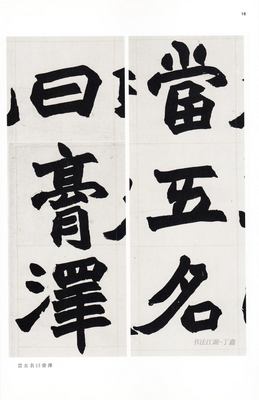 18
當五名
曰膏澤
书法江湖-丁鑫
當五名曰膏澤